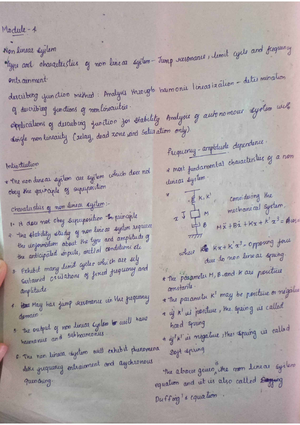 Module - 4
Non linear system
Types and characteristics of non linear system - Jump resonance, limit cycles and frequency
entrainment
describing function method : Analysis through harmonic linearisation - determination
of describing functions of nonlinearities
applications of describing function for stability Analysis of autonomous system with
single nonlinearity (relay, dead zone and saturation only)
Introduction
The non linear system are system which does not
obey the principle of superposition
Characteristics of non linear system :-
It does not obey superposition principle
The stability study of non linear system requires
the information about the type and amplitude of
the anticipated inputs, initial conditions etc
Exhibit many limit cycles which are self
sustained oscillations of fixed frequency and
amplitude
has jump resonance in the frequency
domain
The output of non linear system will have
harmonics and subharmonics
The non linear system will exhibit phenomena
like frequency entrainment and asynchronous
quenching.
Frequency - amplitude dependence
most fundamental characteristics of a non
linear system
K, K'
M
B
considering the
mechanical system
where Kx + K'x³ = opposing force
due to non linear spring
The parameter M, B and K are positive
constants
The parameter K' may be positive or negative
if K' is positive, the spring is called
hard spring
if K' is negative, the spring is called
soft spring
The above given, the non linear system
equation and it is also called
Duffing's equation.